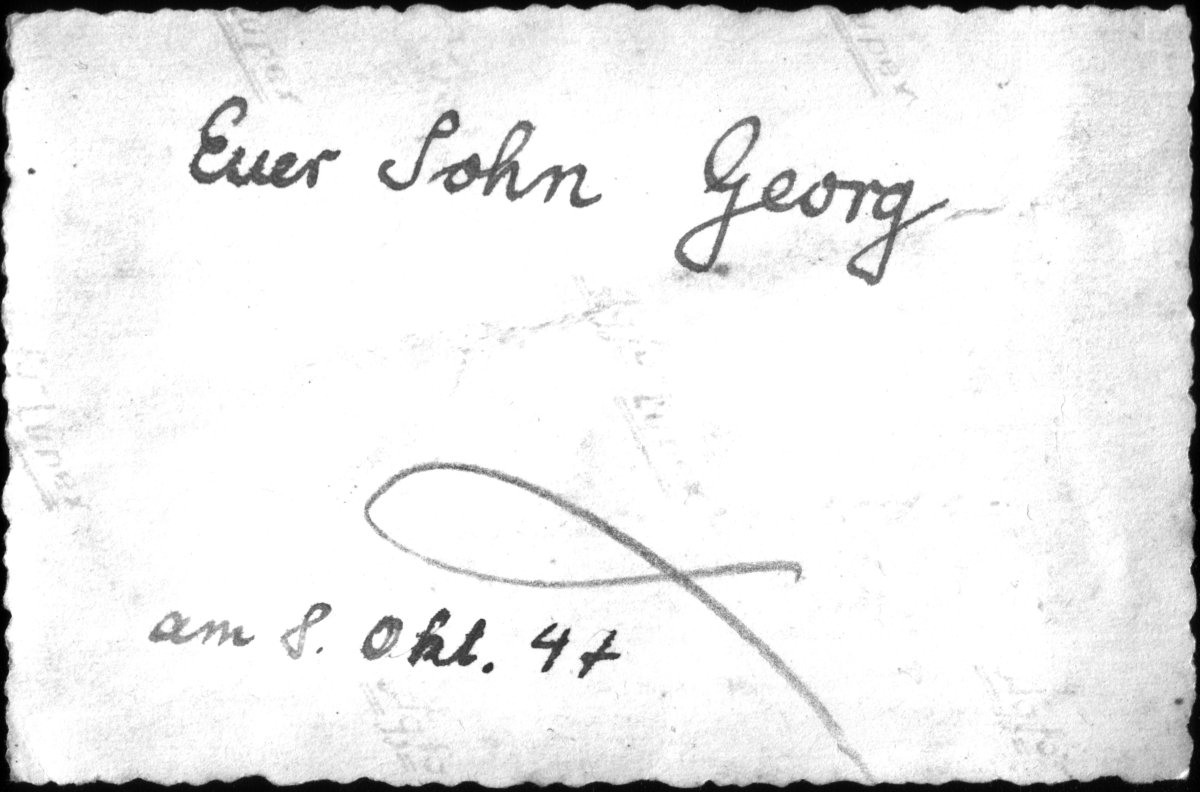 Euer Sohn Georg
am 8. Okt. 47